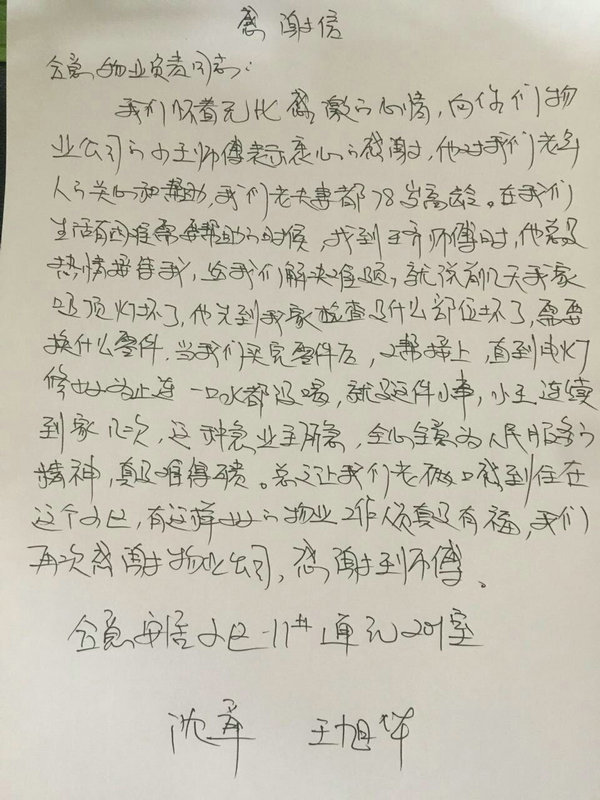 感谢信
合意物业负责同志:
我们怀着无比感激的心情,向你们物
业公司的小王师傅表示衷心的感谢,他对我们老年
人的关心和帮助,我们老夫妻都78岁高龄。在我们
生活有困难需要帮助的时候,找到王齐师傅时,他总是
热情接待我,给我们解决难题,就说前几天我家
吸顶灯坏了,他先到我家检查是什么部位坏了,需要
换什么零件,当我们买完零件后,又帮接上,直到电灯
修好为止连一口水都没喝,就是这件小事,小王连续
到家几次,这种急业主所急,全心全意为人民服务的
精神,真是难得可贵。总之让我们老俩口感到住在
这个小区,有这样好的物业工作人员真是有福,我们
再次感谢物业公司,感谢王师傅。
合意安居小区-11#1单元201室
沈军 王旭华